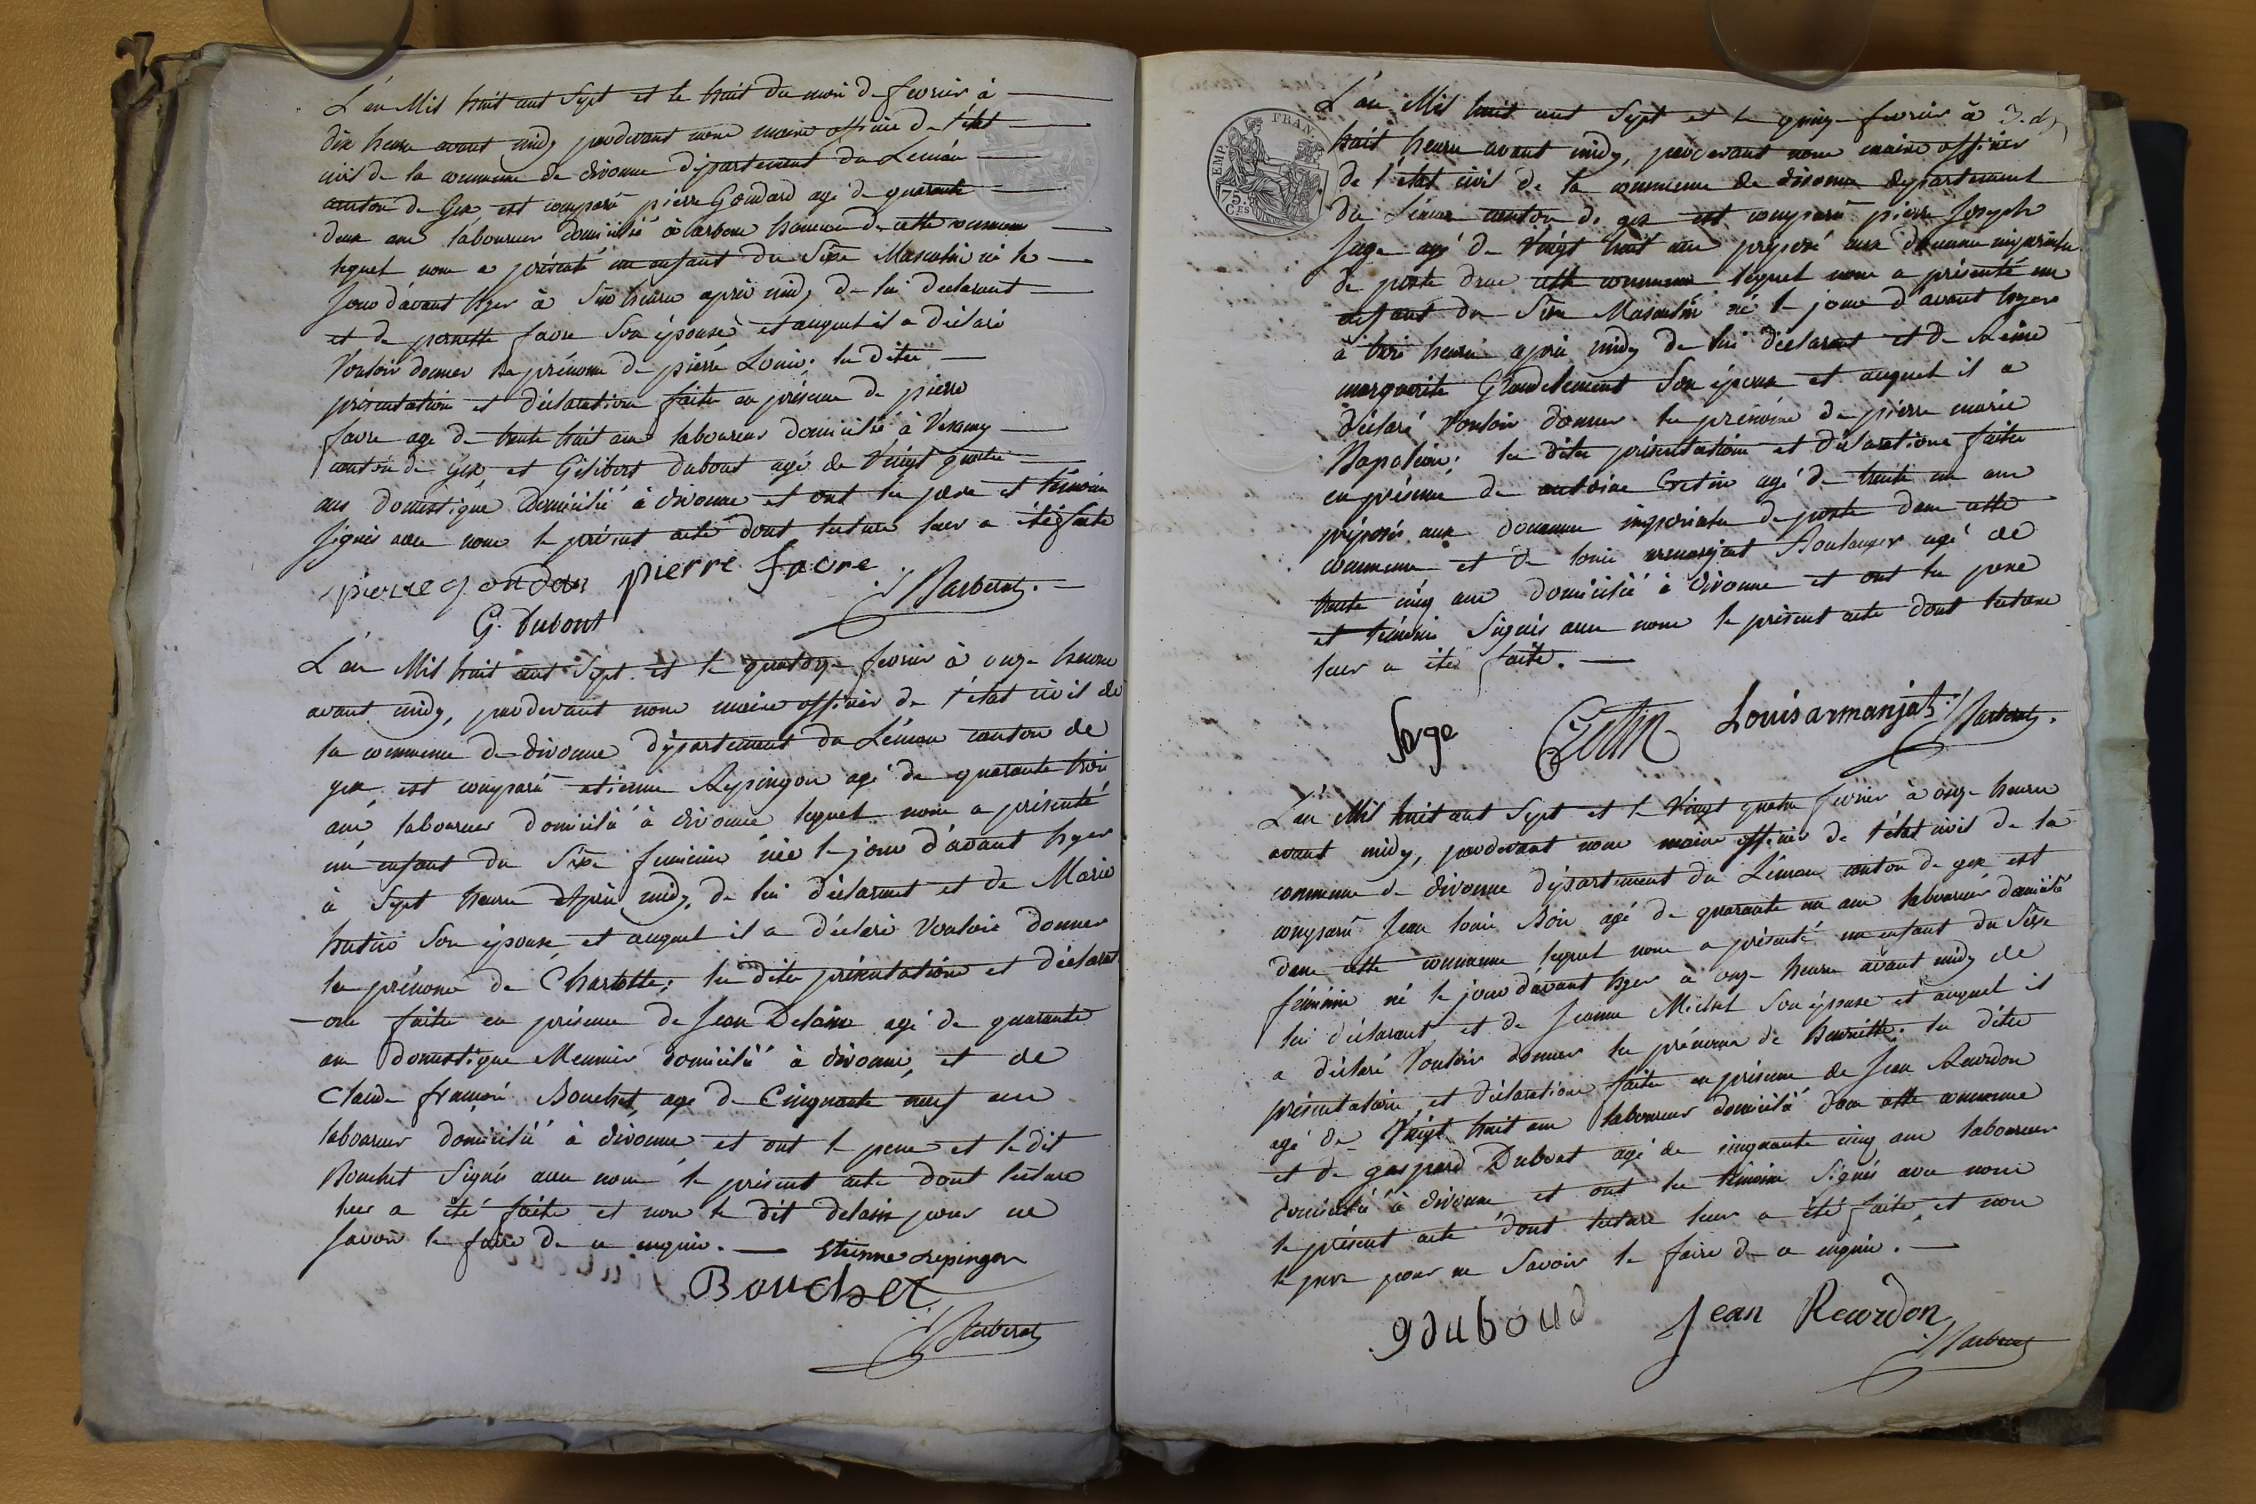 L'an Mil huit cent Sept et le huit du mois de fevrier à
dix heure avant midy pardevant nous maire officier de l'état
civil de la commune de divonne département du Leman
canton de Gex, est comparu pierre Goudard agé de quarante
deux ans laboureur domicilié à arbere hameau de cette commune
lequel nous a présenté un enfant du Sèxe Masculin né le
jour d'avant hyer à Six heures après midy de lui declarant
et de pernette favre Son épouse et auquel il a déclaré
Vouloir donner les prénoms de pierre Louis; les dites
présentation et déclaration faite en présence de pierre
favre agé de trente huit ans laboureur domicilié à Vesancy
canton de Gex et Gélibert dubout agé de Vingt quatre
ans domestique domicilié à divonne et ont les père et témoins
Signés avec nous le présent acte dont lecture leur a été faite
pierre goudar pierre favre
G. Dubout Barberat
L'an Mil huit cent Sept et le quatorze fevrier à onze heures
avant midy, pardevant nous maire officier de l'état civil de
la commune de divonne département du Léman canton de
gex est comparu etienne Repingon agé de quarante trois
ans laboureur domicilié à divonne lequel nous a présenté
un enfant du Sèxe feminin née le jour d'avant hyer
à Sept heures après midy, de lui déclarant et de Marie
hutin Son épouse et auquel il a déclaré Vouloir donner
le prénom de Charlotte; les dites présentatione et déclarat
-ion faite en présence de Jean Delain agé de quarante
ans domestique Meunier domicilié à divonne, et de
Claude françois Bouchet, agé de Cinquante neuf ans
laboureur domicilié à divonne et ont le pere et le dit
Bouchet Signés avec nous le présent acte dont lecture
leur a été faite et non le dit delain pour ne
Savoir le faire de ce enquis. Etienne repingon
Bouchet
Barberat
L'an Mil huit cent Sept et le quinze fevrier à 3.
huit heures avant midy, pardevant nous maire officier
de l'état civil de la commune de divonne departement
du Léman canton de gex est comparu pierre Joseph
Juge agé de Vingt huit ans preposé aux douanes imperiales
de poste dans cette commune lequel nous a présenté un
enfant du Sèxe Masculin né le jour d'avant hyere
à trois heures après midy de lui déclarant et de Reine
marguerite Grandclement Son épouse et auquel il a
déclaré Vouloir donner les prénoms de pierre marie
Napoleon; les dites présentation et déclaratione faite
en présence de antoine Cretin agé de trente un ans
préposés aux douanes imperiales de poste dans cette
commune et de louis armanjat Boulanger agé de
trente cinq ans domicilié à divonne et ont les pere
et témoins Signés avec nous le présent acte dont lecture
leur a été faite.
Juge Cretin Louis armanjat Barberat
L'an Mil huit cent Sept et le Vingt quatre fevrier à onze heures
avant midy, pardevant nous maire officier de l'état civil de la
commune de divonne département du Léman canton de gex est
comparu Jean louis Bois agé de quarante un ans laboureur domicilié
dans cette commune lequel nous a présenté un enfant du Sèxe
féminin né le jour d'avant hyer à onze heures avant midy de
lui déclarant et de Jeanne Michel Son épouse et auquel il
a déclaré Vouloir donner les prénoms de Henriette. les dites
présentation, et déclaration faite en présence de Jean Recordon
agé de Vingt huit ans laboureur domicilié dans cette commune
et de gaspard Dubout agé de cinquante cinq ans laboureur
domicilié à divonne et ont les témoins Signés avec nous
le présent acte dont lecture leur a été faite, et non
le pere pour ne Savoir le faire de ce enquis.
gduboud Jean Recordon
Barberat
EMP. FRAN.
75 CES